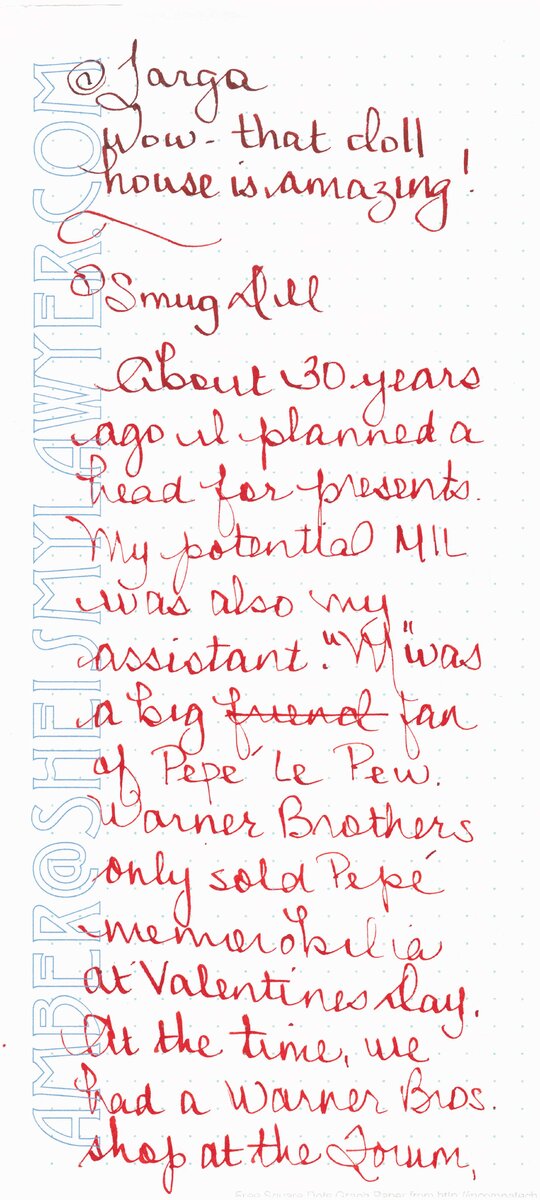 @Targa
Wow - that doll
house is amazing!
@Smug Dill
About 30 years
ago I planned a
head for presents.
My potential MIL
was also my
assistant. "M" was
a big friend fan
of Pepé Le Pew.
Warner Brothers
only sold Pepé
memorobilia
at Valentines Day.
At the time, we
had a Warner Bros.
shop at the Forum,
AMBER@SHEISMYLAWYER.COM